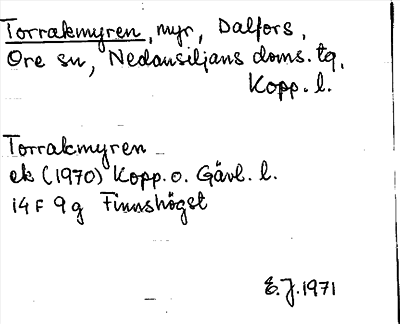 Torrakmyren, myr, Dalfors,
Ore sn, Nedansiljans doms. tg,
Kopp. l.
Torrakmyren
ek (1970) Kopp. o. Gävl. l.
14 F 9 g Finnshöget
E. J. 1971